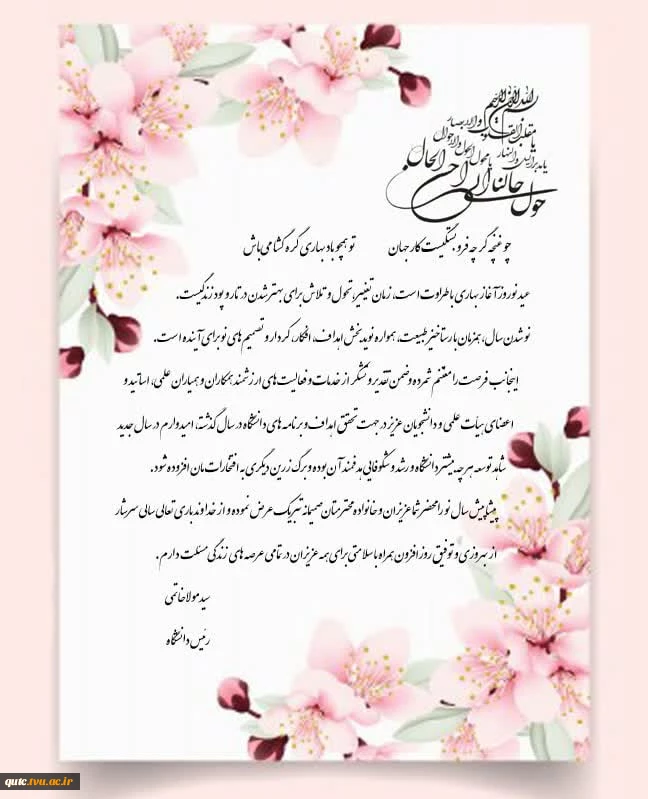 بسم الله الرحمن الرحیم
یا مقلب القلوب والابصار
یا مدبر اللیل والنهار
یا محول الحول والاحوال
حول حالنا الی احسن الحال
چو غنچه گرچه فروبستگیست کار جهان تو همچو باد بهاری گره گشا می باش
عید نوروز آغاز بهاری با طراوت است، زمان تغییر، تحول و تلاش برای بهتر شدن در تار و پود زندگیست.
نو شدن سال، همزمان با رستاخیز طبیعت، همواره نویدبخش اهداف، افکار، کردار و تصمیم های نو برای آینده است.
اینجانب فرصت را مغتنم شمرده و ضمن تقدیر و تشکر از خدمات و فعالیت های ارزشمند همکاران و همیاران علمی، اساتید و
اعضای هیأت علمی و دانشجویان عزیز در جهت تحقق اهداف و برنامه های دانشگاه در سال گذشته، امیدوارم در سال جدید
شاهد توسعه هر چه بیشتر دانشگاه و رشد و شکوفایی هدفمند آن بوده و برگ زرین دیگری به افتخارات مان افزوده شود.
پیشاپیش سال نو را محضر شما عزیزان و خانواده محترمتان صمیمانه تبریک عرض نموده و از خداوند باری تعالی سالی سرشار
از بهروزی و توفیق روز افزون همراه با سلامتی برای همه عزیزان در تمامی عرصه های زندگی مسئلت دارم.
سید مولا خاتمی
رئیس دانشگاه
qutc.tvu.ac.ir